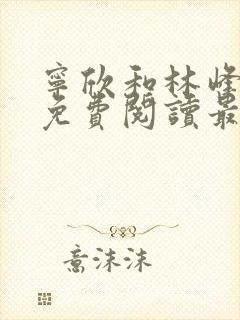 寧欣和林峰
免費閱讀最
意沫沫